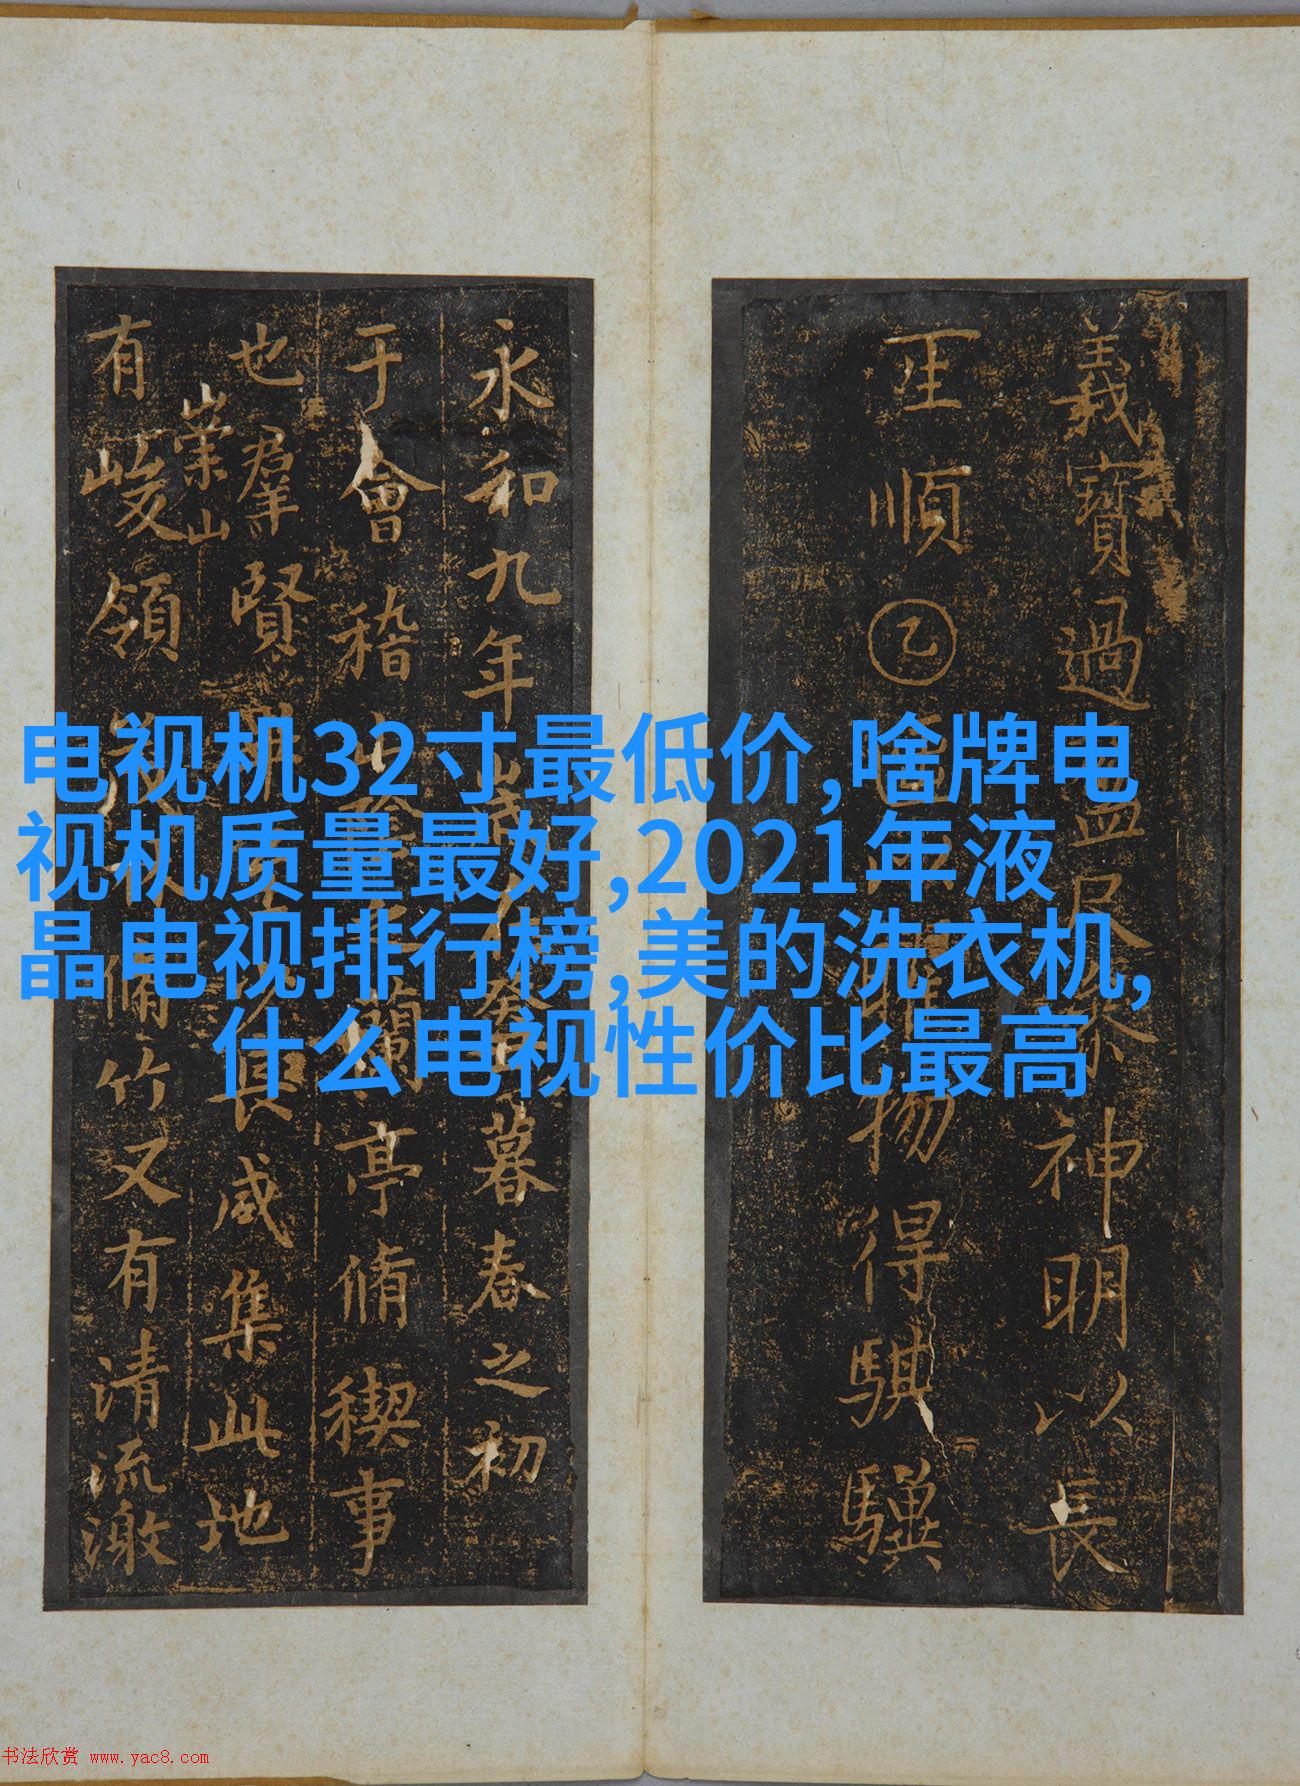 电视机32寸最低价,啥牌电
视机质量最好,2021年液
晶电视排行榜,美的洗衣机,
什么电视性价比最高
義寶過益神明以長
王順乙得騏驥
永和九年癸丑暮春之初
于會稽山陰之蘭亭脩禊事
也群賢長咸集此地
崇山
有峻領脩竹又有清流激
书法欣赏 www.yac8.com